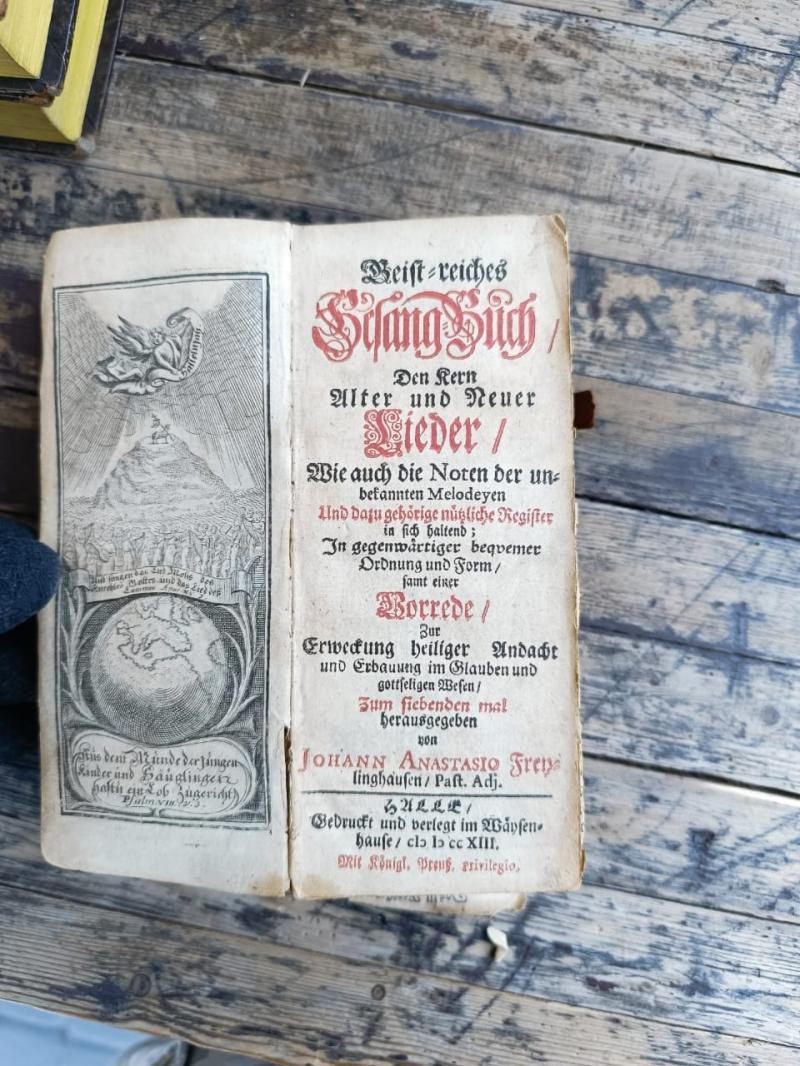 Halleluja
Und sungen das Lied Mosis des
Knechtes Gottes und das Lied des
Lammes Apoc. XV.
Aus dem Munde der Jungen
Kinder und Säuglingen
hastu ein Lob Zugericht
Psalm VIII. v. 3.
Geist-reiches
Gesang-Buch /
Den Kern
Alter und Neuer
Lieder /
Wie auch die Noten der un-
bekannten Melodeyen
Und dazu gehörige nützliche Register
in sich haltend;
In gegenwärtiger beqvemer
Ordnung und Form /
samt einer
Vorrede /
Zur
Erweckung heiliger Andacht
und Erbauung im Glauben und
gottseligen Wesen /
Zum siebenden mal
herausgegeben
von
JOHANN ANASTASIO Frey-
linghausen / Past. Adj.
HALLE /
Gedruckt und verlegt im Wäysen-
hause / cIɔ Iɔ cc XIII.
Mit Königl. Preuß. privilegio.